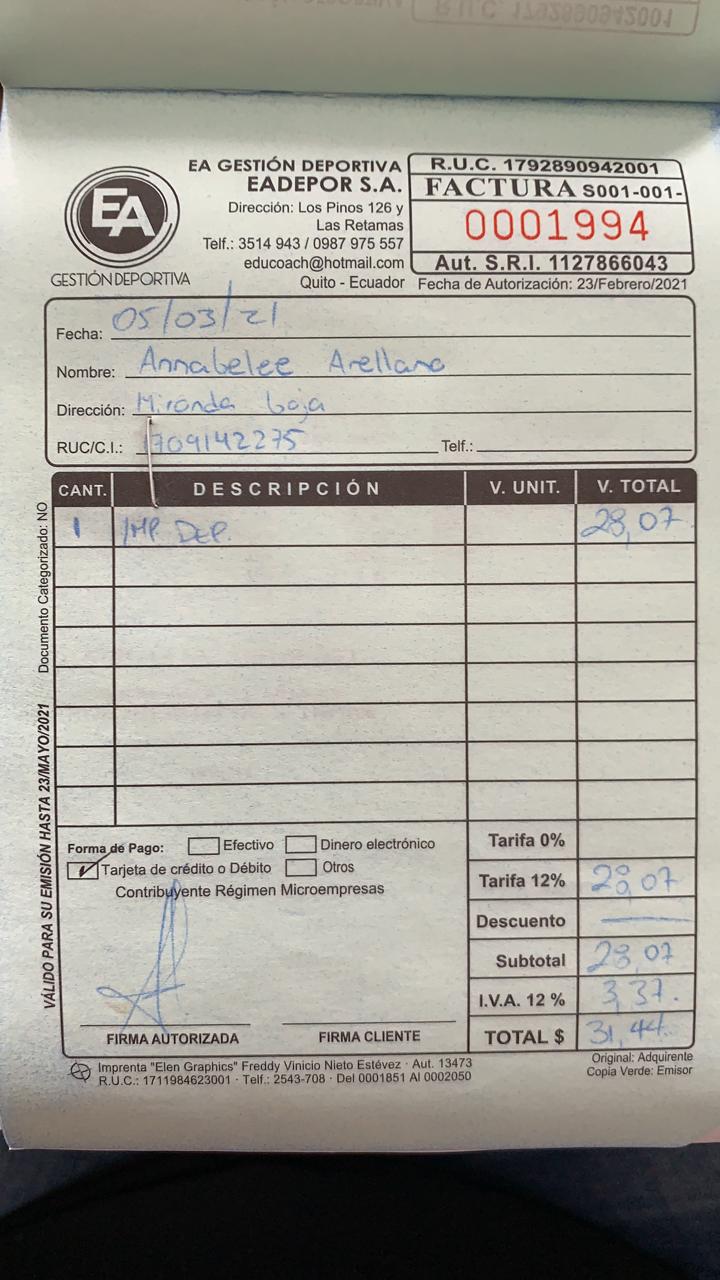 R.U.C. 1792890942001
EA
GESTIÓN DEPORTIVA
EA GESTIÓN DEPORTIVA
EADEPOR S.A.
Dirección: Los Pinos 126 y
Las Retamas
Telf.: 3514 943 / 0987 975 557
educoach@hotmail.com
Quito - Ecuador
R.U.C. 1792890942001
FACTURA S001-001-
0001994
Aut. S.R.I. 1127866043
Fecha de Autorización: 23/Febrero/2021
Fecha: 05/03/21
Nombre: Annabelee Arellano
Dirección: Miranda baja
RUC/C.I.: 1709142275 Telf.:
CANT. DESCRIPCIÓN V. UNIT. V. TOTAL
1 IMP. DEP. 28,07
Documento Categorizado: NO
VÁLIDO PARA SU EMISIÓN HASTA 23/MAYO/2021
Forma de Pago: Efectivo Dinero electrónico
Tarjeta de crédito o Débito Otros
Contribuyente Régimen Microempresas
FIRMA AUTORIZADA FIRMA CLIENTE
Tarifa 0%
Tarifa 12% 28,07
Descuento
Subtotal 28,07
I.V.A. 12 % 3,37.
TOTAL $ 31,44
Imprenta "Elen Graphics" Freddy Vinicio Nieto Estévez · Aut. 13473
R.U.C.: 1711984623001 · Telf.: 2543-708 · Del 0001851 Al 0002050
Original: Adquirente
Copia Verde: Emisor